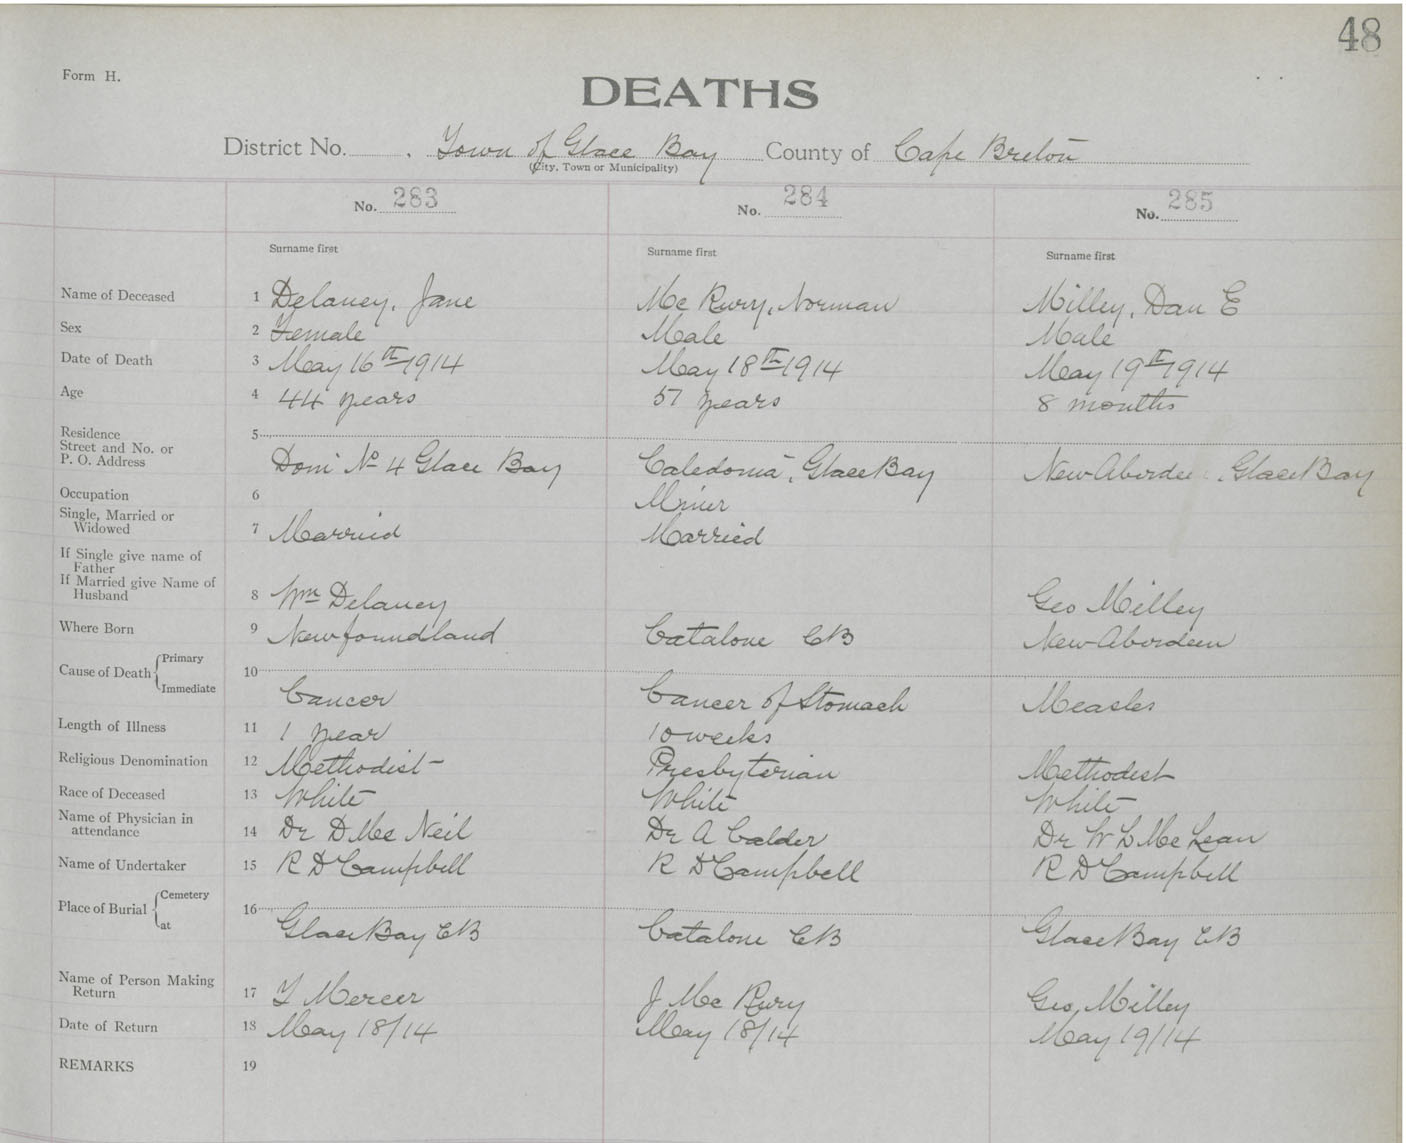 48
Form H.
DEATHS
District No. . Town of Glace Bay County of Cape Breton
(City, Town or Municipality)
No. 283 No. 284 No. 285
Surname first Surname first Surname first
Name of Deceased 1 Delaney, Jane Mc Rury, Norman Milley, Dan E
Sex 2 Female Male Male
Date of Death 3 May 16th 1914 May 18th 1914 May 19th 1914
Age 4 44 years 57 years 8 months
Residence 5
Street and No. or
P. O. Address Dom No 4 Glace Bay Caledonia, Glace Bay New Aberdee , Glace Bay
Occupation 6 Miner
Single, Married or
Widowed 7 Married Married
If Single give name of
Father
If Married give Name of
Husband 8 Wm Delaney Geo Milley
Where Born 9 Newfoundland Catalone CB New Aberdeen
Cause of Death Primary 10
Immediate Cancer Cancer of Stomach Measles
Length of Illness 11 1 year 10 weeks
Religious Denomination 12 Methodist Presbyterian Methodist
Race of Deceased 13 White White White
Name of Physician in
attendance 14 Dr D Mc Neil Dr A Calder Dr W L Mc Lean
Name of Undertaker 15 R D Campbell R D Campbell R D Campbell
Place of Burial Cemetery 16
at Glace Bay CB Catalone CB Glace Bay CB
Name of Person Making
Return 17 T Mercer J Mc Rury Geo, Milley
Date of Return 18 May 18/14 May 18/14 May 19/14
REMARKS 19